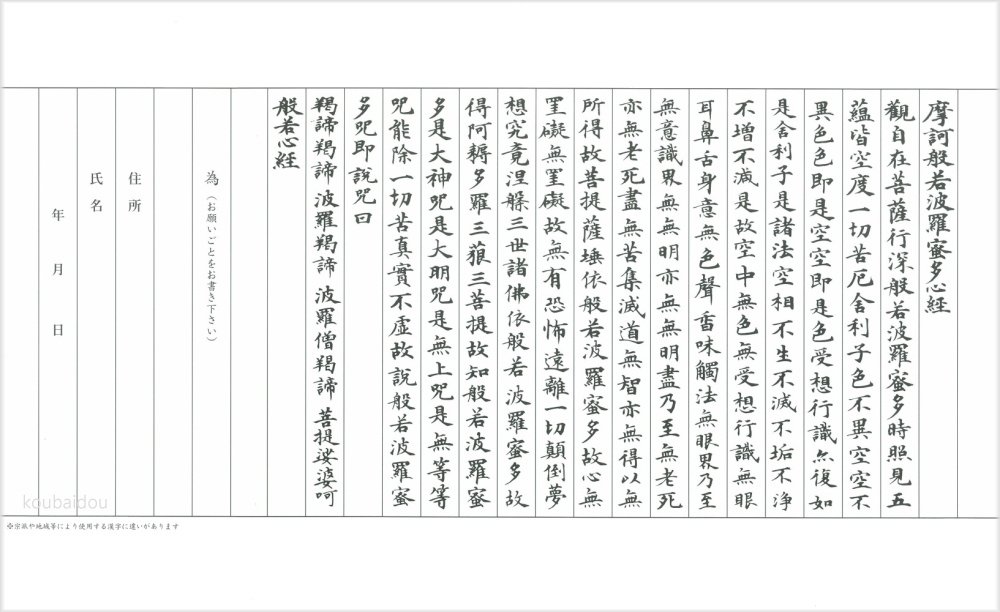 摩訶般若波羅蜜多心経
觀自在菩薩行深般若波羅蜜多時照見五
蘊皆空度一切苦厄舎利子色不異空空不
異色色即是空空即是色受想行識亦復如
是舎利子是諸法空相不生不滅不垢不浄
不增不減是故空中無色無受想行識無眼
耳鼻舌身意無色聲香味觸法無眼界乃至
無意識界無無明亦無無明盡乃至無老死
亦無老死盡無苦集滅道無智亦無得以無
所得故菩提薩埵依般若波羅蜜多故心無
罣礙無罣礙故無有恐怖遠離一切顛倒夢
想究竟涅槃三世諸佛依般若波羅蜜多故
得阿耨多羅三藐三菩提故知般若波羅蜜
多是大神咒是大明咒是無上咒是無等等
咒能除一切苦真實不虛故説般若波羅蜜
多咒即説咒曰
羯諦羯諦 波羅羯諦 波羅僧羯諦 菩提娑婆呵
般若心経
為(お願いごとをお書き下さい)
住所
氏名
年 月 日
koubaidou
※宗派や地域等により使用する漢字に違いがあります